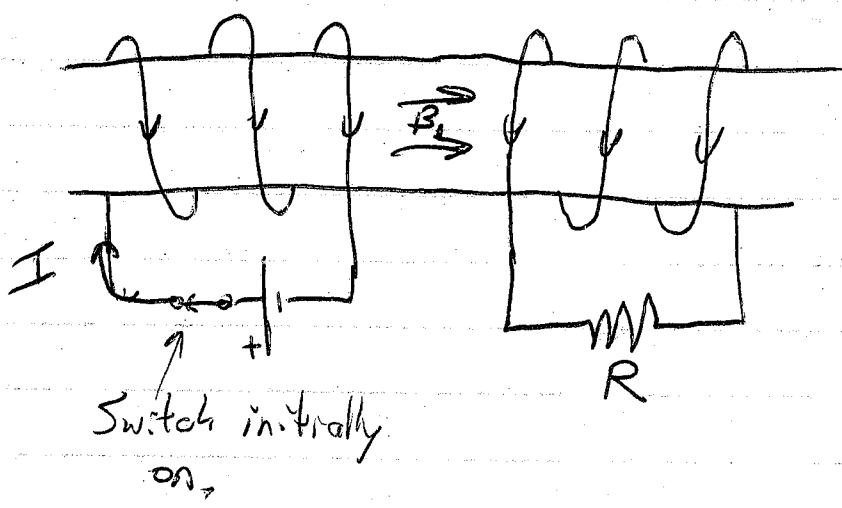 B₁
I
+
R
Switch initially
on,